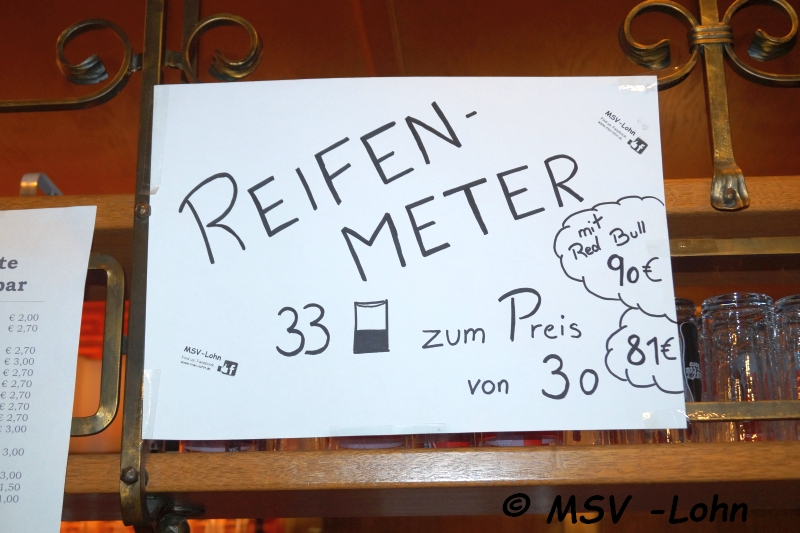 REIFEN-
METER
33 zum Preis
von 30
mit
Red Bull
90€
81€
MSV-Lohn
MSV-Lohn
te
bar
€ 2,00
€ 2,70
€ 2,70
€ 3,00
€ 2,70
€ 2,70
€ 2,70
€ 2,70
€ 2,70
€ 3,00
3,00
3,00
1,50
1,00
© MSV -Lohn